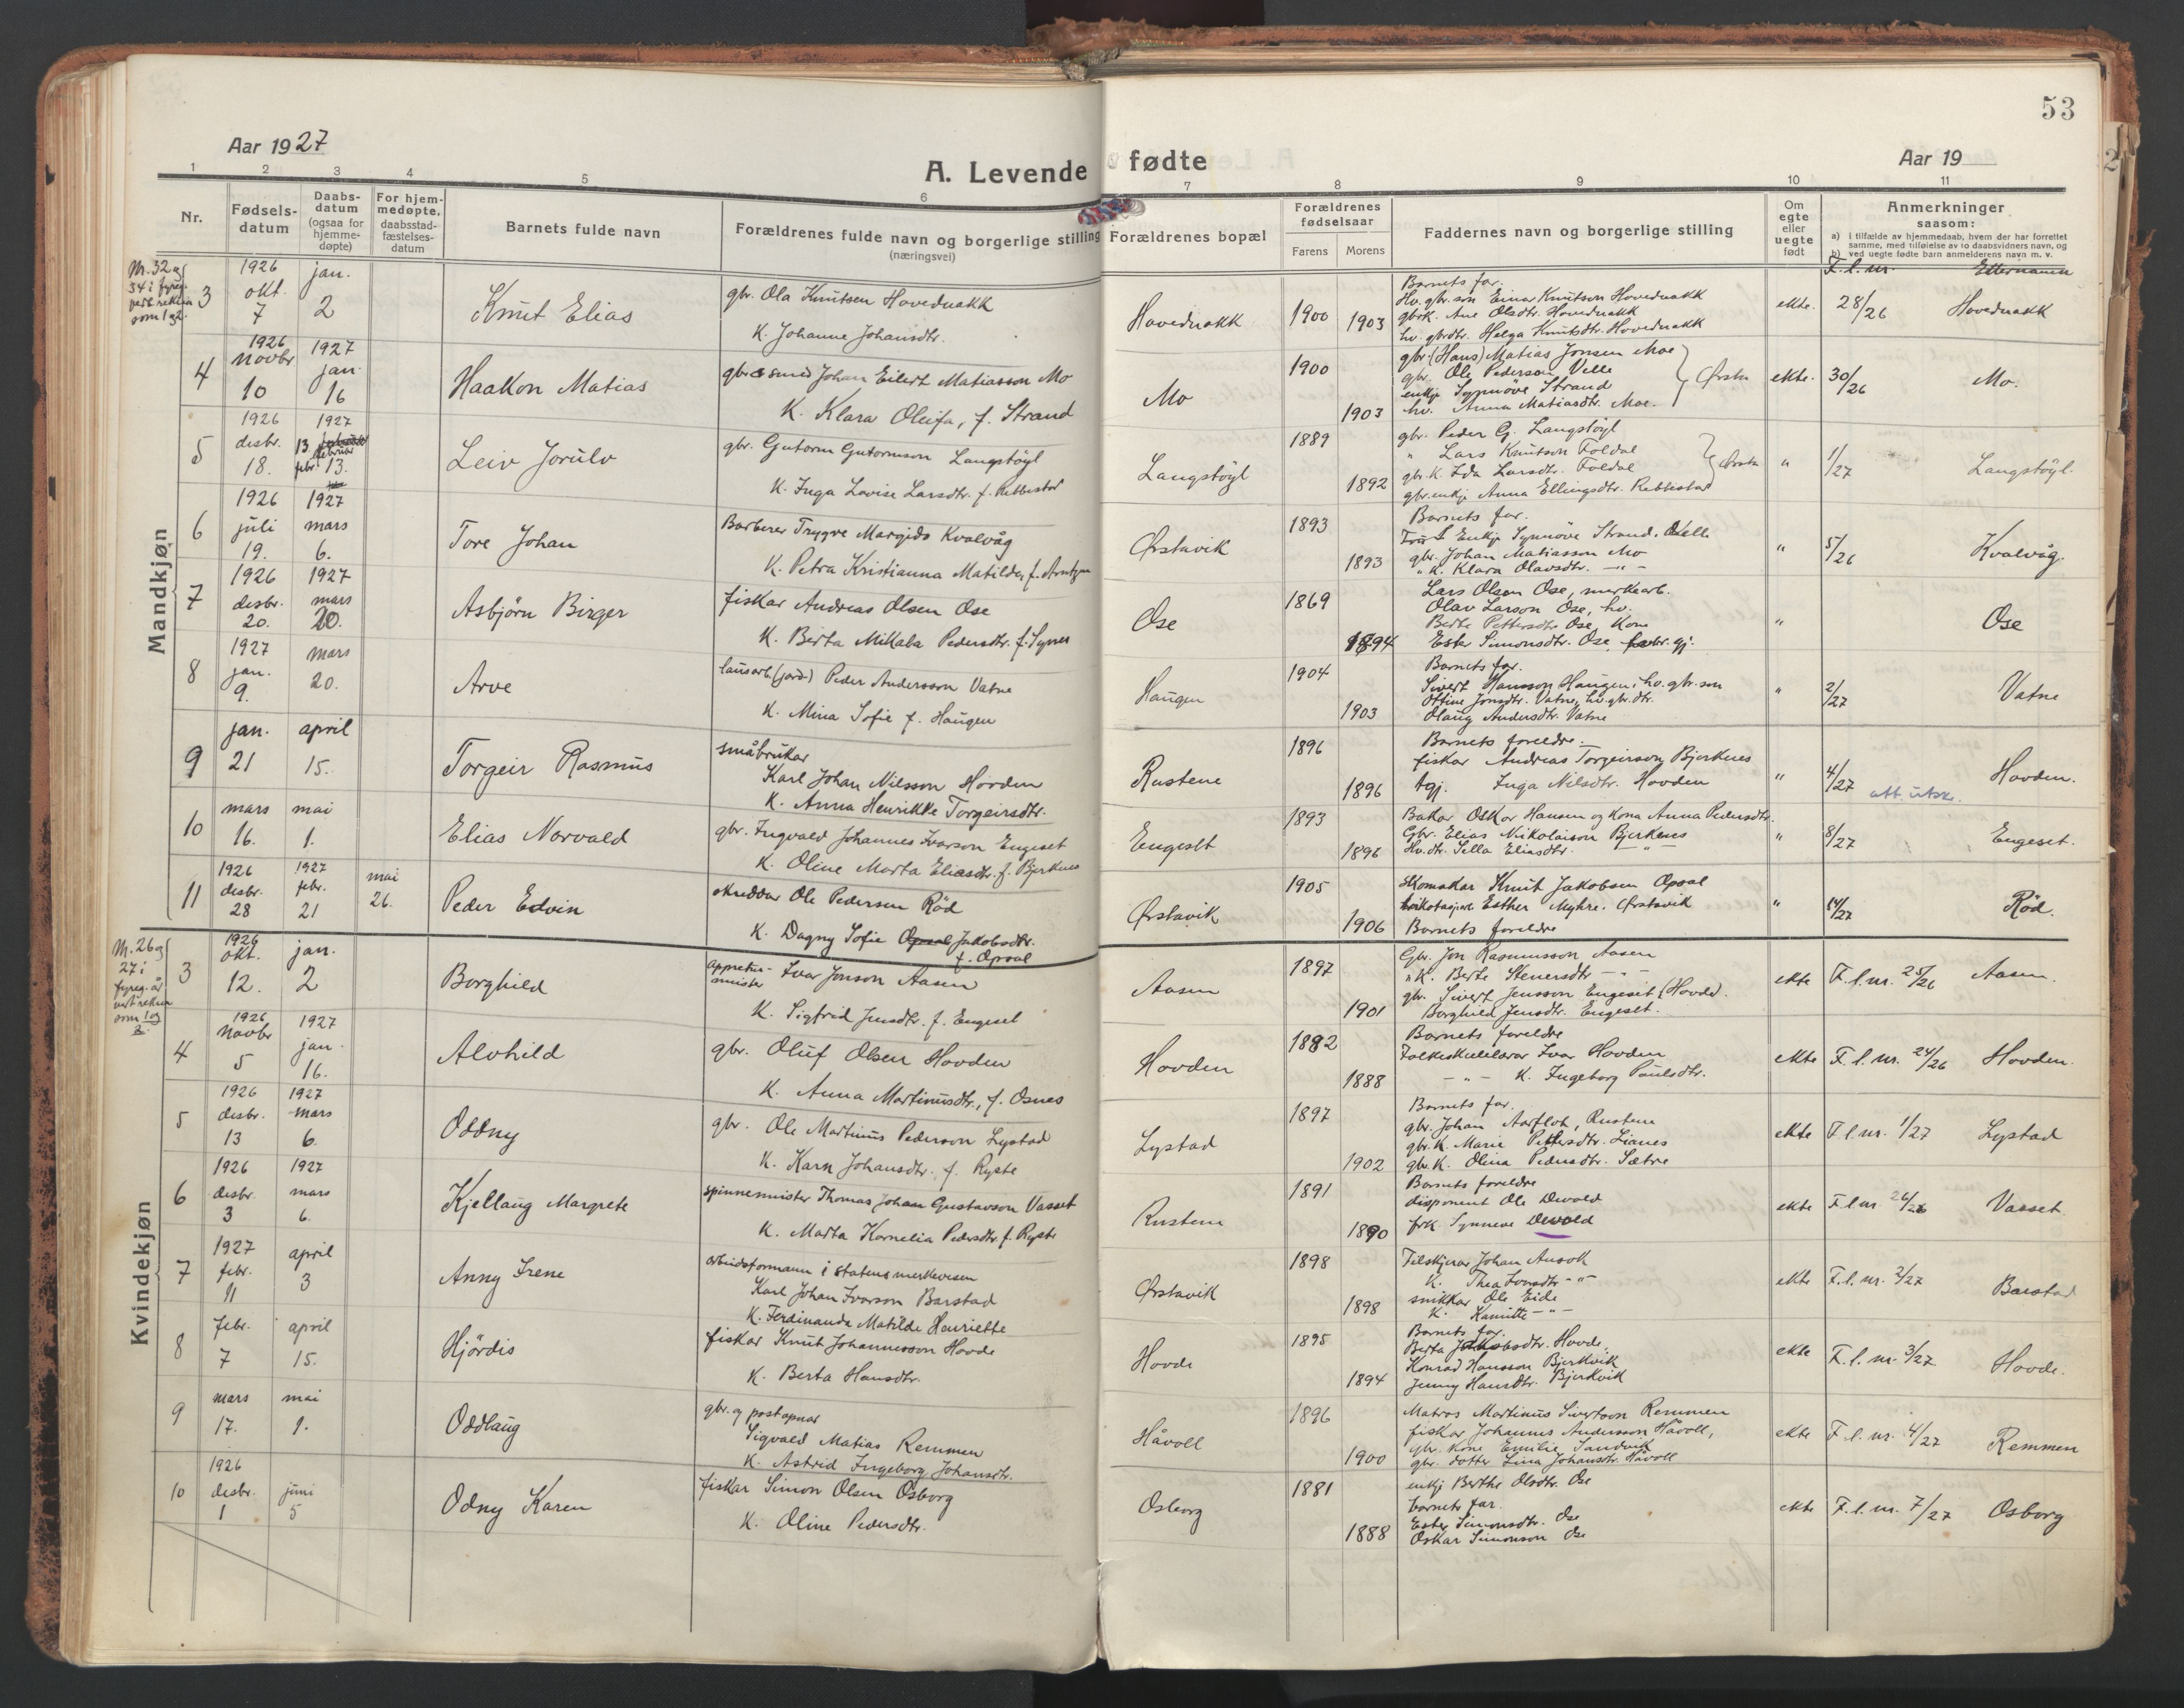 53
Aar 1927
A. Levende fødte
Aar 19
1 2 3 4 5 6 7 8 9 10 11
Nr.
Fødsels-
datum
Daabs-
datum
(ogsaa for
hjemme-
døpte)
For hjem-
medøpte,
daabsstad-
fæstelses-
datum
Barnets fulde navn
Forældrenes fulde navn og borgerlige stilling
(næringsvei)
Forældrenes bopæl
Forældrenes
fødselsaar
Farens Morens
Faddernes navn og borgerlige stilling
Om
egte
eller
uegte
født
Anmerkninger
saasom:
a) i tilfælde av hjemmedaab, hvem der har forrettet
samme, med tilføielse av to daabsvidners navn, og
b) ved uegte fødte barn anmelderens navn m. v.
F. l. nr. Etternamn
Mandkjøn
Nr. 32 og
34 i fyreg.
som 1 og 2.
3
1926
okt.
7
jan.
2
Knut Elias
gbr. Ola Knutsen Hovednakk
K. Johanne Johansdtr.
Hovednakk
1900
1903
Barnets far.
Hv. gbr. son Einar Knutson Hovednakk
gbrk. Ane Olsdtr. Hovednakk
hv. gbrdtr. Helga Knutsdtr. Hovednakk
ekte.
28/26
Hovednakk
4
1926
Novbr
10
1927
jan.
16
Haakon Matias
gbr & smed Johan Eilert Matiasson Mo
K. Klara Oleifa, f. Strand
Mo
1900
1903
gbr. (Hans) Matias Jonsen Moe
gbr. Ole Pederson Velle
enkje Synnöve Strand
hv. Anna Matiasdtr. Moe.
Ørsta
ekte.
30/26
Mo.
5
1926
desbr.
18.
1927
13.
febr. 13.
Leiv Jorulv
gbr. Gutorm Gutormson Langstöyl
K. Inga Lovise Larsdtr. f. Rebbestad
Langstöyl
1889
1892
gbr. Peder G. Langstöyl
" Lars Knutson Foldal
gbr. K. Ida Larsdtr. Foldal
gbr. enkje Anna Ellingsdtr. Rebbestad
Ørsta
"
1/27
Langstöyl.
6
1926
juli
19.
1927
mars
6.
Tore Johan
Barberer Trygve Margido Kvalvåg
K. Petra Kristianna Matilda, f. Arntzen
Ørstavik
1893
1893
Barnets far.
Enkje Synnöve Strand, Velle
gbr. Johan Matiasson Mo
" K. Klara Olavsdtr. — " —
"
5/26
Kvalvåg.
7
1926
desbr.
20.
1927
mars
20.
Asbjörn Birger
fiskar Andreas Olsen Ose
K. Berta Mikala Pedersdtr. f. Synes
Ose
1869
1894
Lars Olsen Ose, murkearb.
Olav Larson Ose, hv.
Berte Pettersdtr Ose, Kone
Ester Simonsdtr. Ose, fabr. gj.
"
Ose
8
1927
jan.
9.
mars
20.
Arve
lausarb. (jord-) Peder Andersson Vatne
K. Mina Sofie f. Haugen
Haugen
1904
1903
Barnets far.
Sivert Hansson Haugen, hv. gbr. son
Ottine Jonsdtr. Vatne, hv. gbr. dtr.
Olaug Andersdtr. Vatne
"
2/27
Vatne
9
jan.
21
april
15.
Torgeir Rasmus
småbrukar
Karl Johan Nilsson Hovden
K. Anna Henrikke Torgeirsdtr.
Rustene
1896
1896
Barnets foreldre.
fiskar Andreas Torgeirson Bjerknes
tgj. Inga Nilsdtr. Hovden
"
4/27 att. utsk.
Hovden.
10
mars
16.
mai
1.
Elias Norvald
gbr. Ingvald Johannes Ivarson Engeset
K. Oline Marta Eliasdtr. f. Bjerknes
Engeset
1893
1896
Bakar Oskar Hansen og Kona Anna Pedersdtr.
Gbr. Elias Nikolaison Bjerknes
Hv. dtr. Sella Eliasdtr. — " —
"
8/27
Engeset.
11
1926
desbr.
28
1927
febr.
21
mai
26.
Peder Edvin
skreddar Ole Pedersen Röd
K. Dagny Sofie Opsal Jakobsdtr.
f. Opsal
Ørstavik
1905
1906
Skomakar Knut Jakobsen Opsal
Esther Myhre. Ørstavik
Barnets foreldre
"
14/27
Röd.
Kvindekjøn
Nr. 26 og
27 i
fyreg. år
vert rekna
som 1 og
2.
3
1926
okt.
12.
jan.
2
Borghild
Appretur-
meister Ivar Jonson Aasen
K. Sigfrid Jensdtr. f. Engeset
Aasen
1897
1901
Gbr. Jon Rasmusson Aasen
" K. Berte Steinersdtr — " —
gbr. Sivert Jensson Engeset (Hovde).
Borghild Jensdtr. Engeset.
ekte
F. l. nr. 25/26
Aasen.
4
1926
Novbr
5
1927
jan.
16.
Alvhild
gbr. Oluf Olsen Hovden
K. Anna Martinusdtr., f. Osnes
Hovden
1882
1888
Barnets foreldre
Folkeskulelærar Ivar Hovden
— " — K. Ingeborg Paulsdtr.
ekte
F. l. nr. 24/26
Hovden.
5
1926
desbr.
13
1927
mars
6.
Oddny
gbr. Ole Martinus Pederson Lystad
K. Karn Johansdtr. f. Ryste
Lystad
1897
1902
Barnets far.
gbr. Johan Aarflot, Rustene
gbr. K. Marie Pettersdtr. Lianes
gbr. K. Olina Pedersdtr. Sætre
ekte
F l nr. 1/27
Lystad
6
1926
desbr.
3
1927
mars
6.
Kjellaug Margrete
spinnemeister Thomas Johan Gustavson Vasset
K. Marta Kornelia Pedersdtr. f. Ryste
Rustene
1891
1890
Barnets foreldre
disponent Ole Devold
frk Synneve Devold
ekte
F l nr 26/26
Vasset
7
1927
febr.
11
april
3
Anny Irene
arbeidsformann i statens merkevesen
Karl Johan Ivarson Barstad
K. Ferdinanda Matilde Henriette
Ørstavik
1898
1898
Tilskjerar Johan Ansok
K. Thea Ivarsdtr — " —
snikkar Ole Eide
K. Kamitte — " —
ekte
F. l. nr. 2/27
Barstad
8
febr.
7
april
15.
Hjördis
fiskar Knut Johannesson Hovde
K. Berta Hansdtr.
Hovde
1895
1894
Barnets far.
Berta Jakobsdtr. Hovde.
Konrad Hansson Bjerkvik
Jenny Hansdtr. Bjerkvik
ekte
F. l. nr. 3/27
Hovde.
9
mars
17.
mai
1.
Oddlaug
gbr. og postopnar
Sigvald Matias Remmen
K. Astrid Ingeborg Johansdtr.
Håvoll
1896
1900
Matros Martinus Sivertson Remmen
fiskar Johannes Andersson Håvoll,
gbr. kone Emilie Sandvik
gbr. dotter Lina Johansdtr. Håvoll
ekte
F. l. nr. 4/27
Remmen
10
1926
desbr.
1
juni
5
Odny Karen
fiskar Simon Olsen Osborg
K. Oline Pedersdtr.
Osborg
1881
1888
enkj Berthe Olsdtr. Ose
barnets far.
Ester Simonsdtr. Ose
Oskar Simonson Ose
ekte
F. l. nr. 7/27
Osborg